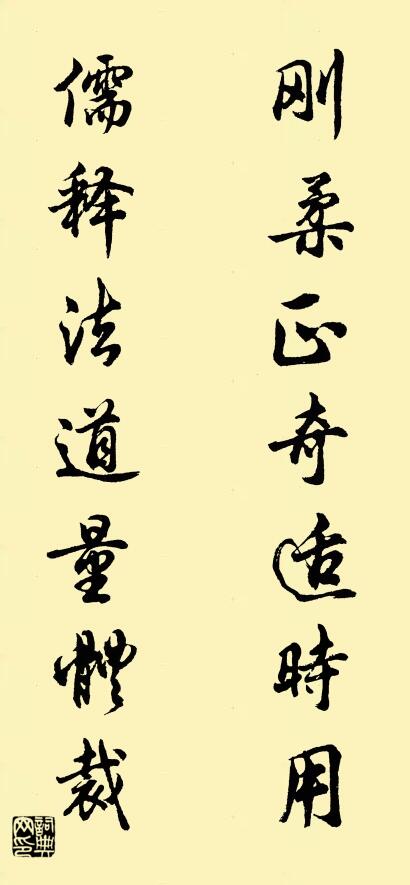 刚柔正奇适時用
儒释法道量體裁
詞典网印